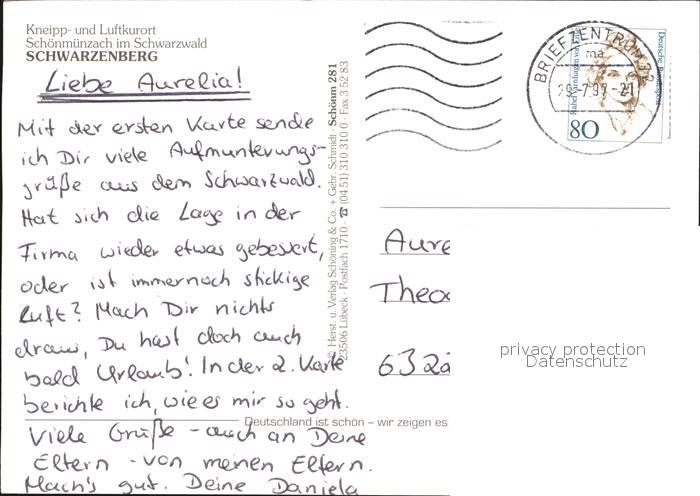 Kneipp- und Luftkurort
Schönmünzach im Schwarzwald
SCHWARZENBERG
Liebe Aurelia!
Mit der ersten Karte sende
ich Dir viele Aufmunterungs-
grüße aus dem Schwarzwald.
Hat sich die Lage in der
Firma wieder etwas gebessert,
oder ist immernoch stickige
Luft? Mach Dir nichts
draus, Du hast doch auch
bald Urlaub! In der 2. Karte
berichte ich, wie es mir so geht.
Viele Grüße - auch an Deine
Eltern - von meinen Eltern.
Mach's gut. Deine Daniela
Deutschland ist schön – wir zeigen es
© Herst. u. Verlag Schöning & Co. + Gebr. Schmidt · Schönm 281
23506 Lübeck · Postfach 1710 · ☎ (04 51) 310 310 0 · Fax 3 52 83
BRIEFZENTRUM
ma
-7.97-21
Deutsche Bundespost
80
Aure
Theo
632
privacy protection
Datenschutz